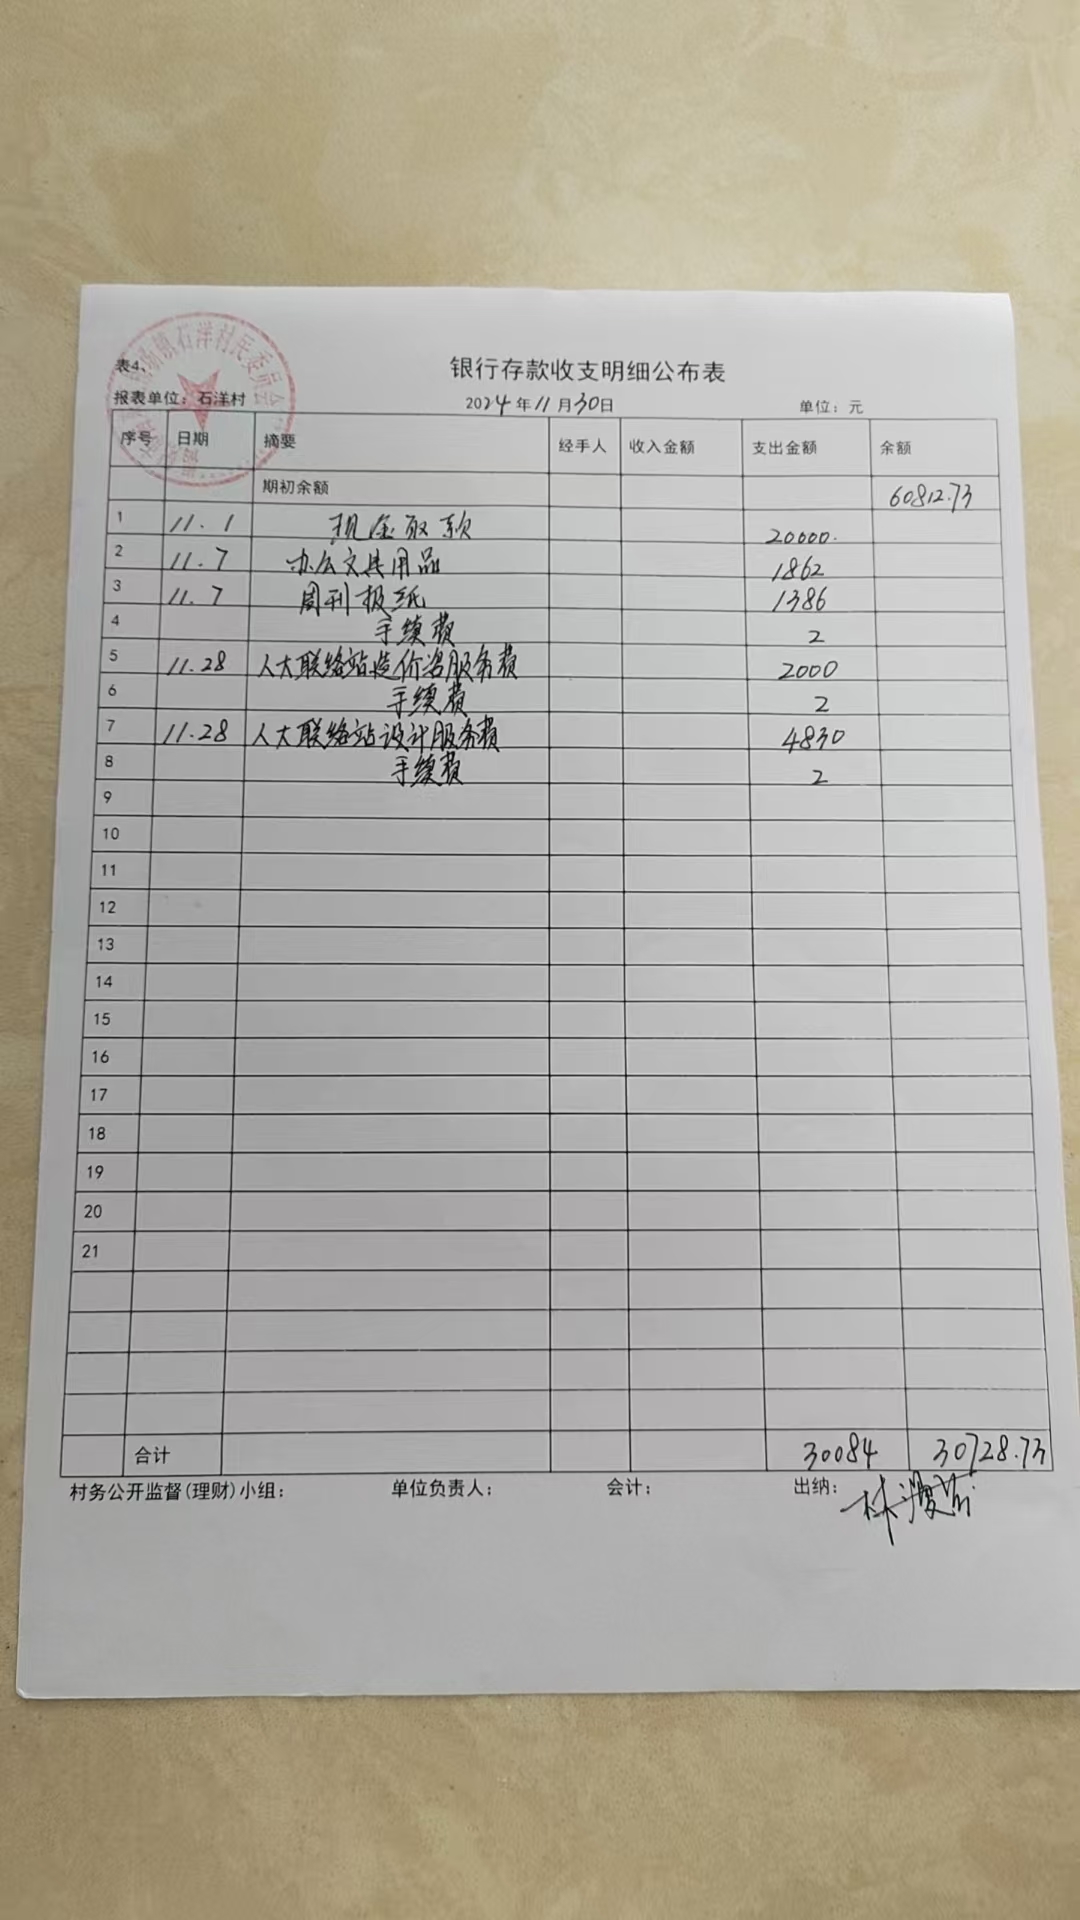 石洋村民委员会
表4、
银行存款收支明细公布表
报表单位：石洋村 2024年11月30日 单位：元
序号 日期 摘要 经手人 收入金额 支出金额 余额
期初余额 60812.73
1 11.1 现金取款 20000.
2 11.7 办公文具用品 1862
3 11.7 周刊报纸 1386
4 手续费 2
5 11.28 人大联络站造价咨服务费 2000
6 手续费 2
7 11.28 人大联络站设计服务费 4830
8 手续费 2
9
10
11
12
13
14
15
16
17
18
19
20
21
合计 30084 30728.73
村务公开监督(理财)小组： 单位负责人： 会计： 出纳： 林